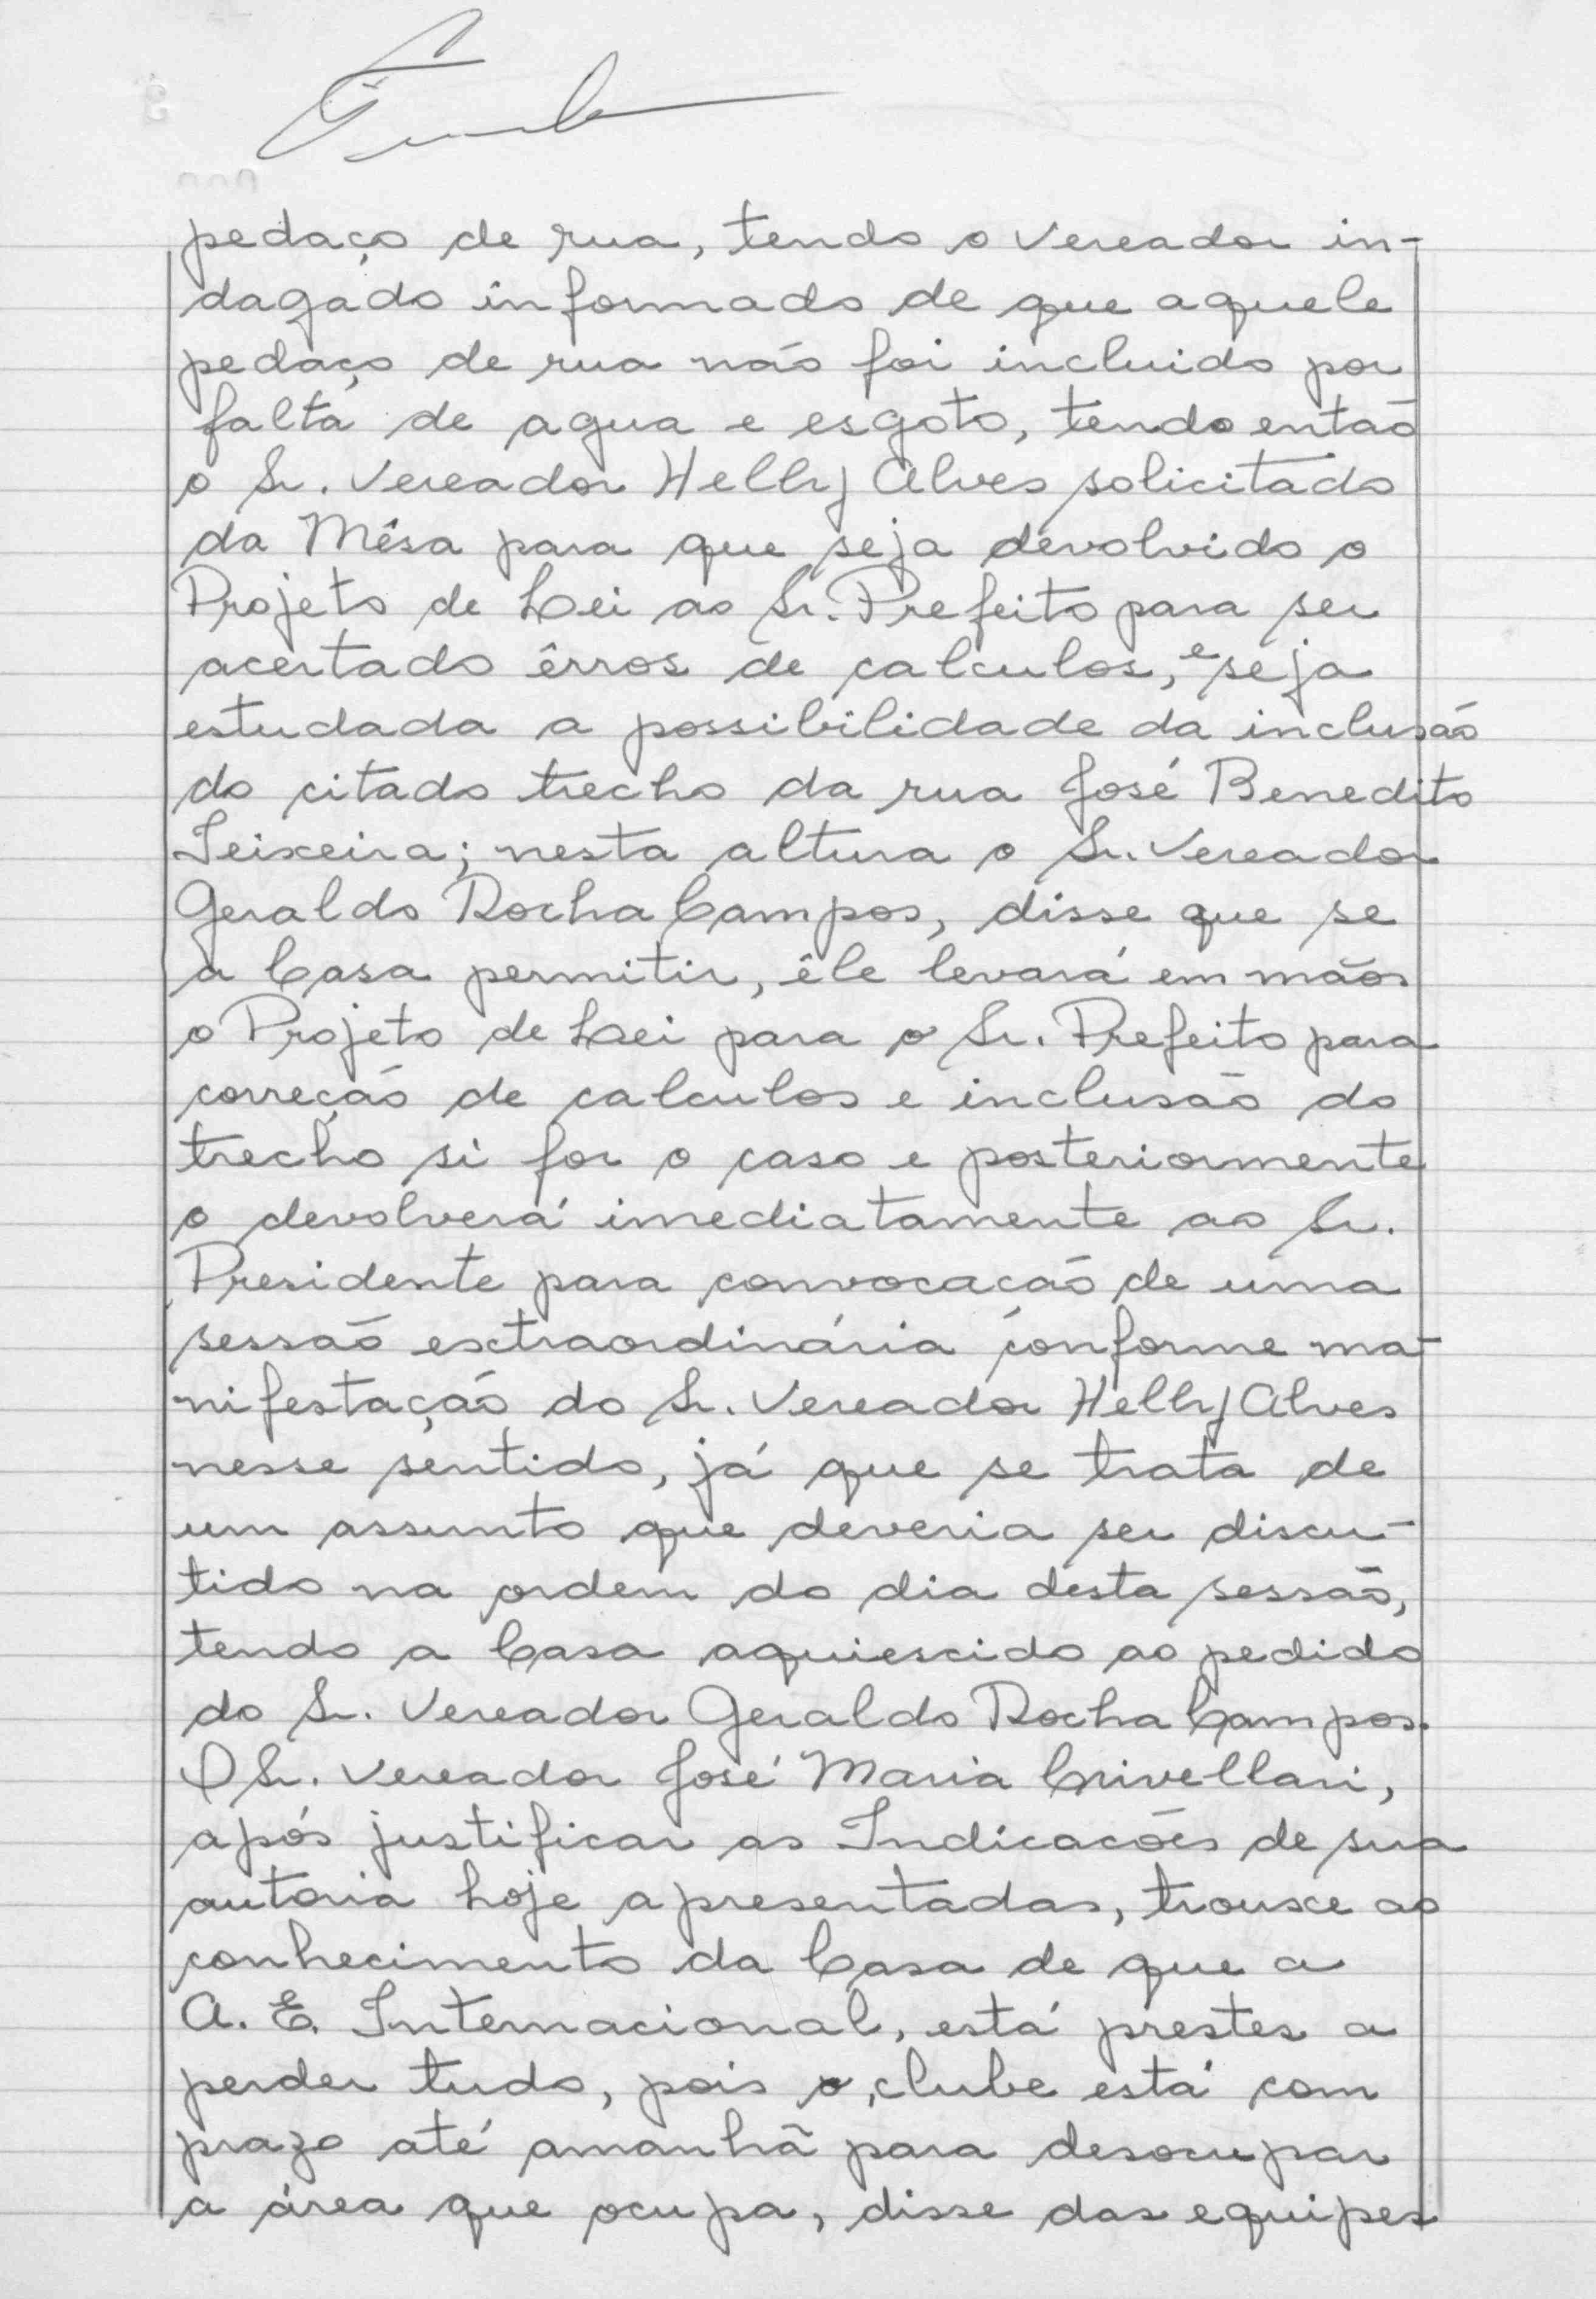 pedaço de rua, tendo o Vereador in-
dagado informado de que aquele
pedaço de rua não foi incluido por
falta de agua e esgoto, tendo então
o Sr. Vereador Helly Alves solicitado
da Mêsa para que seja devolvido o
Projeto de Lei ao Sr. Prefeito para ser
acertado êrros de calculos, e seja
estudada a possibilidade da inclusão
do citado trecho da rua José Benedito
Teixeira; nesta altura o Sr. Vereador
Geraldo Rocha Campos, disse que se
a Casa permitir, êle levará em mãos
o Projeto de Lei para o Sr. Prefeito para
correção de calculos e inclusão do
trecho si for o caso e posteriormente
o devolverá imediatamente ao Sr.
Presidente para convocacão de uma
sessão extraordinária conforme ma-
nifestação do Sr. Vereador Helly Alves
nesse sentido, já que se trata de
um assunto que deveria ser discu-
tido na ordem do dia desta sessão,
tendo a Casa aquiescido ao pedido
do Sr. Vereador Geraldo Rocha Campos.
O Sr. Vereador José Maria Crivellari,
após justificar as Indicacões de sua
autoria hoje apresentadas, trouxe ao
conhecimento da Casa de que a
A. E. Internacional, está prestes a
perder tudo, pois o clube está com
prazo até amanhã para desocupar
a área que ocupa, disse das equipes